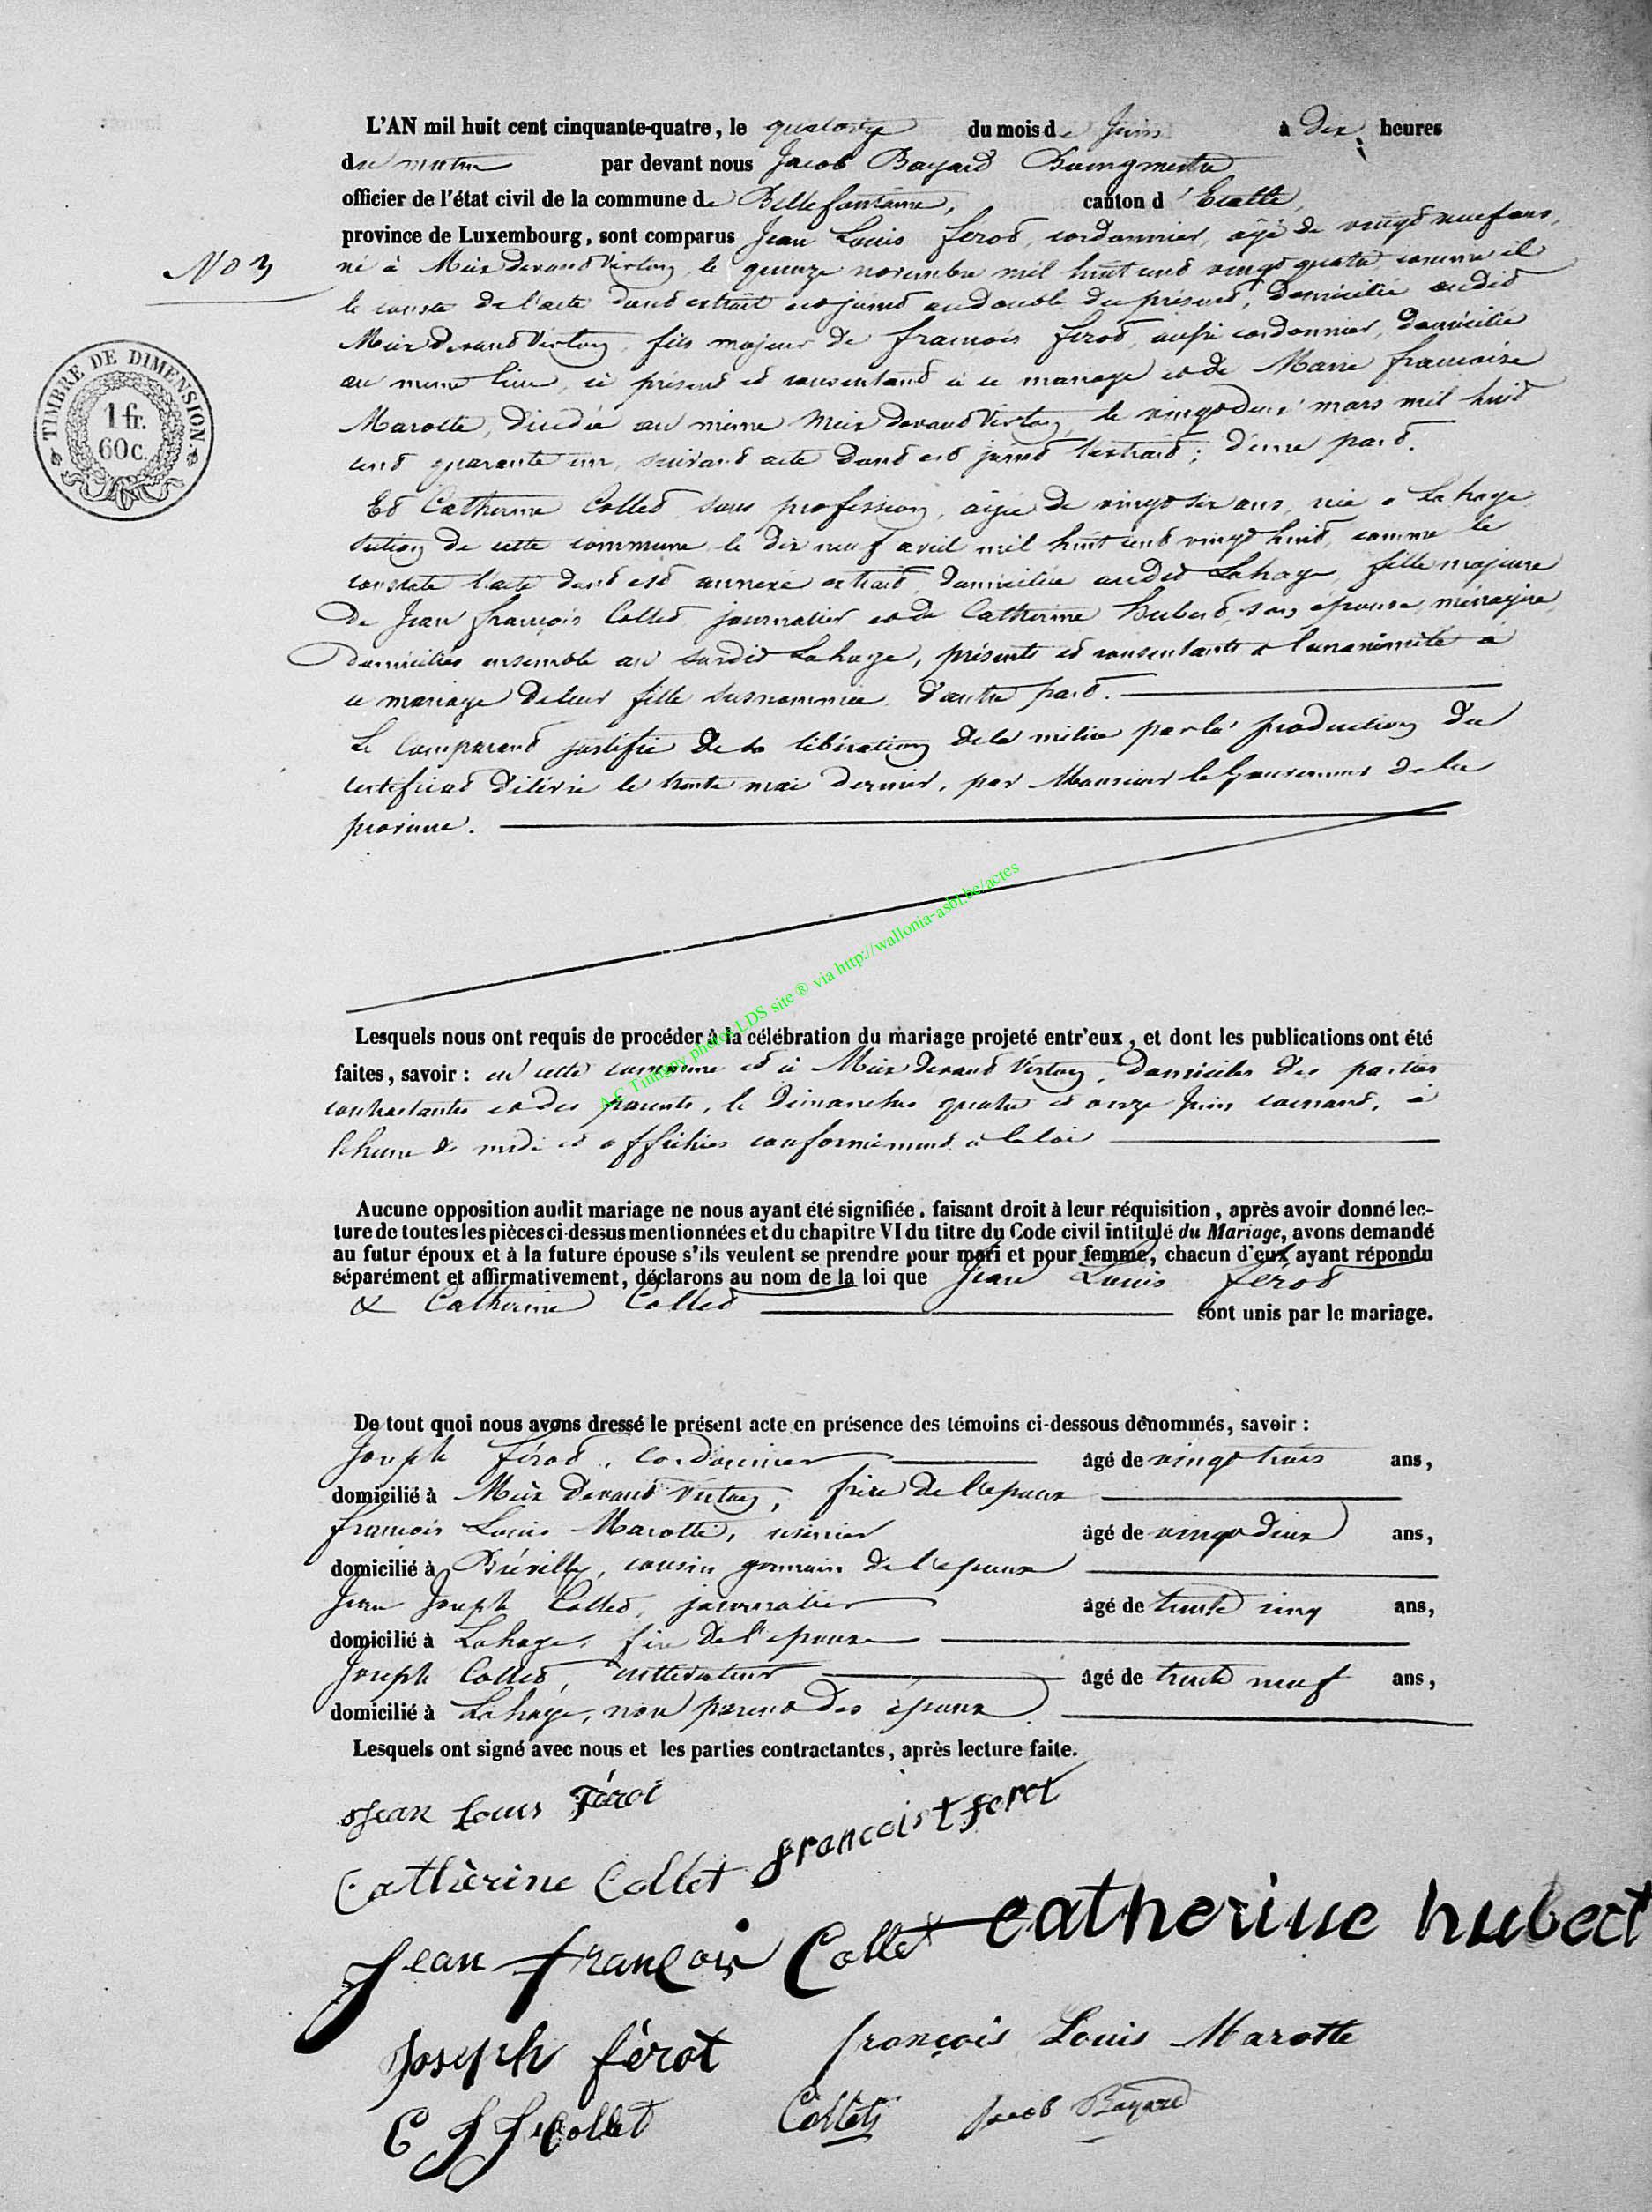 L'AN mil huit cent cinquante-quatre, le quatorze du mois de Juin à dix heures
du matin par devant nous Jacob Bayard Bourgmestre
officier de l'état civil de la commune de Bellefontaine, canton d'Etalle,
province de Luxembourg, sont comparus Jean Louis Ferot, cordonnier, âgé de vingt neuf ans,
No 3
né à Meix devant Virton, le quinze novembre mil huit cent vingt quatre, comme il
le conste de l'acte dont extrait est joint au double du présent, domicilié audit
Meix devant Virton, fils majeur de francois ferot, aussi cordonnier, domicilié
au meme lieu, ici présent et consentant à ce mariage et de Marie francoise
Marotte, décédée au même Meix devant Virton, le vingt deux mars mil huit
cent quarante un, suivant acte dont est joint l'extrait; d'une part.
Et Catherine Collet sans profession, agée de vingt six ans, née a Lahage
section de cette commune le dix neuf avril mil huit cent vingt huit, comme le
constate l'acte dont est annexé extrait, domiciliée audit Lahage, fille majeure
de Jean françois Collet journalier et de Catherine Hubert, son épouse, ménagère,
domiciliés ensemble au susdit Lahage, présents et consentants a l'unanimité à
ce mariage de leur fille susnommée d'autre part.
Le Comparant justifie de sa libération de la milice par la production du
certificat délivré le trente mai dernier, par Monsieur le Gouverneur de la
province.
TIMBRE DE DIMENSION.
1 fr.
60 c.
A.C Tintigny photos LDS site ® via http://wallonia-asbl.be/actes
Lesquels nous ont requis de procéder à la célébration du mariage projeté entr'eux, et dont les publications ont été
faites, savoir : en cette commune et à Meix devant Virton, domiciles des parties
contractantes et des parents, le dimanches quatre et onze Juin courant, à
l'heure de midi et affichées conformément a la loi
Aucune opposition audit mariage ne nous ayant été signifiée, faisant droit à leur réquisition, après avoir donné lec-
ture de toutes les pièces ci-dessus mentionnées et du chapitre VI du titre du Code civil intitulé du Mariage, avons demandé
au futur époux et à la future épouse s'ils veulent se prendre pour mari et pour femme, chacun d'eux ayant répondu
séparément et affirmativement, déclarons au nom de la loi que Jean Louis férot
& Catherine Collet sont unis par le mariage.
De tout quoi nous avons dressé le présent acte en présence des témoins ci-dessous dénommés, savoir :
Joseph férot, Cordonnier âgé de vingt trois ans,
domicilié à Meix devant Virton, frère de l'epoux
francois Louis Marotte, âgé de vingt deux ans,
domicilié à cousin germain de l'epoux
Jean Joseph Collet, journalier âgé de trente cinq ans,
domicilié à Lahage, frère de l'epouse
Joseph Collet, cultivateur âgé de trente neuf ans,
domicilié à Lahage, non parent des époux
Lesquels ont signé avec nous et les parties contractantes, après lecture faite.
Jean Louis Férot
francoist ferot
Cathèrine Collet
catherine hubert
Jean françois Collet
Joseph férot
françois Louis Marotte
Collet
Jacob Bayard